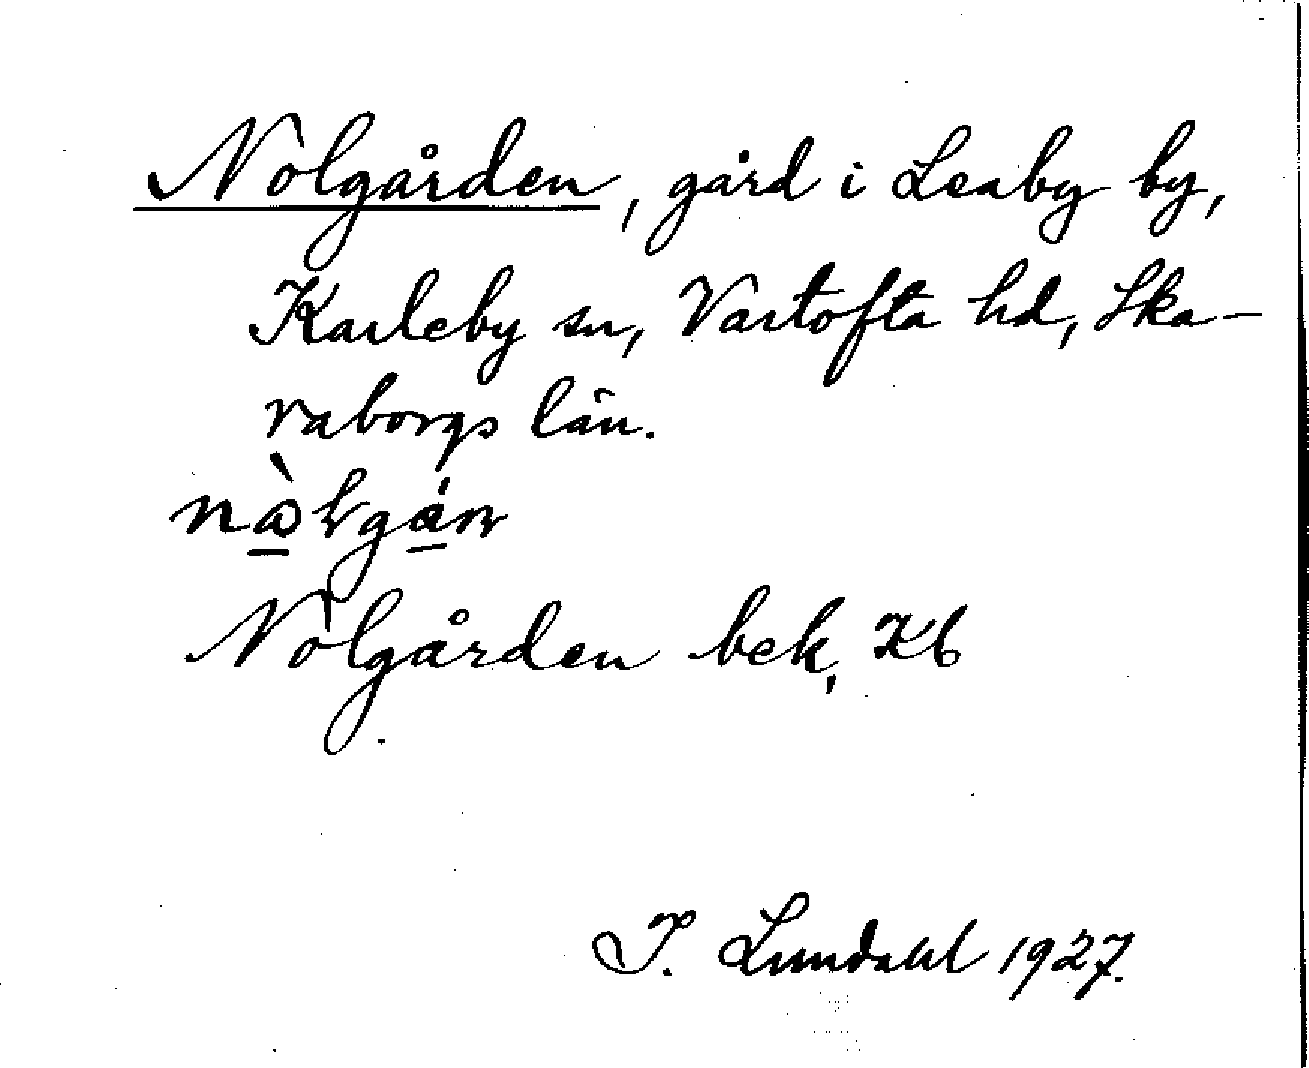 Nolgården, gård i Leaby by,
Karleby sn, Vartofta hd, Ska-
raborgs län.
Nolgården bek, Kb
I. Lundahl 1927.